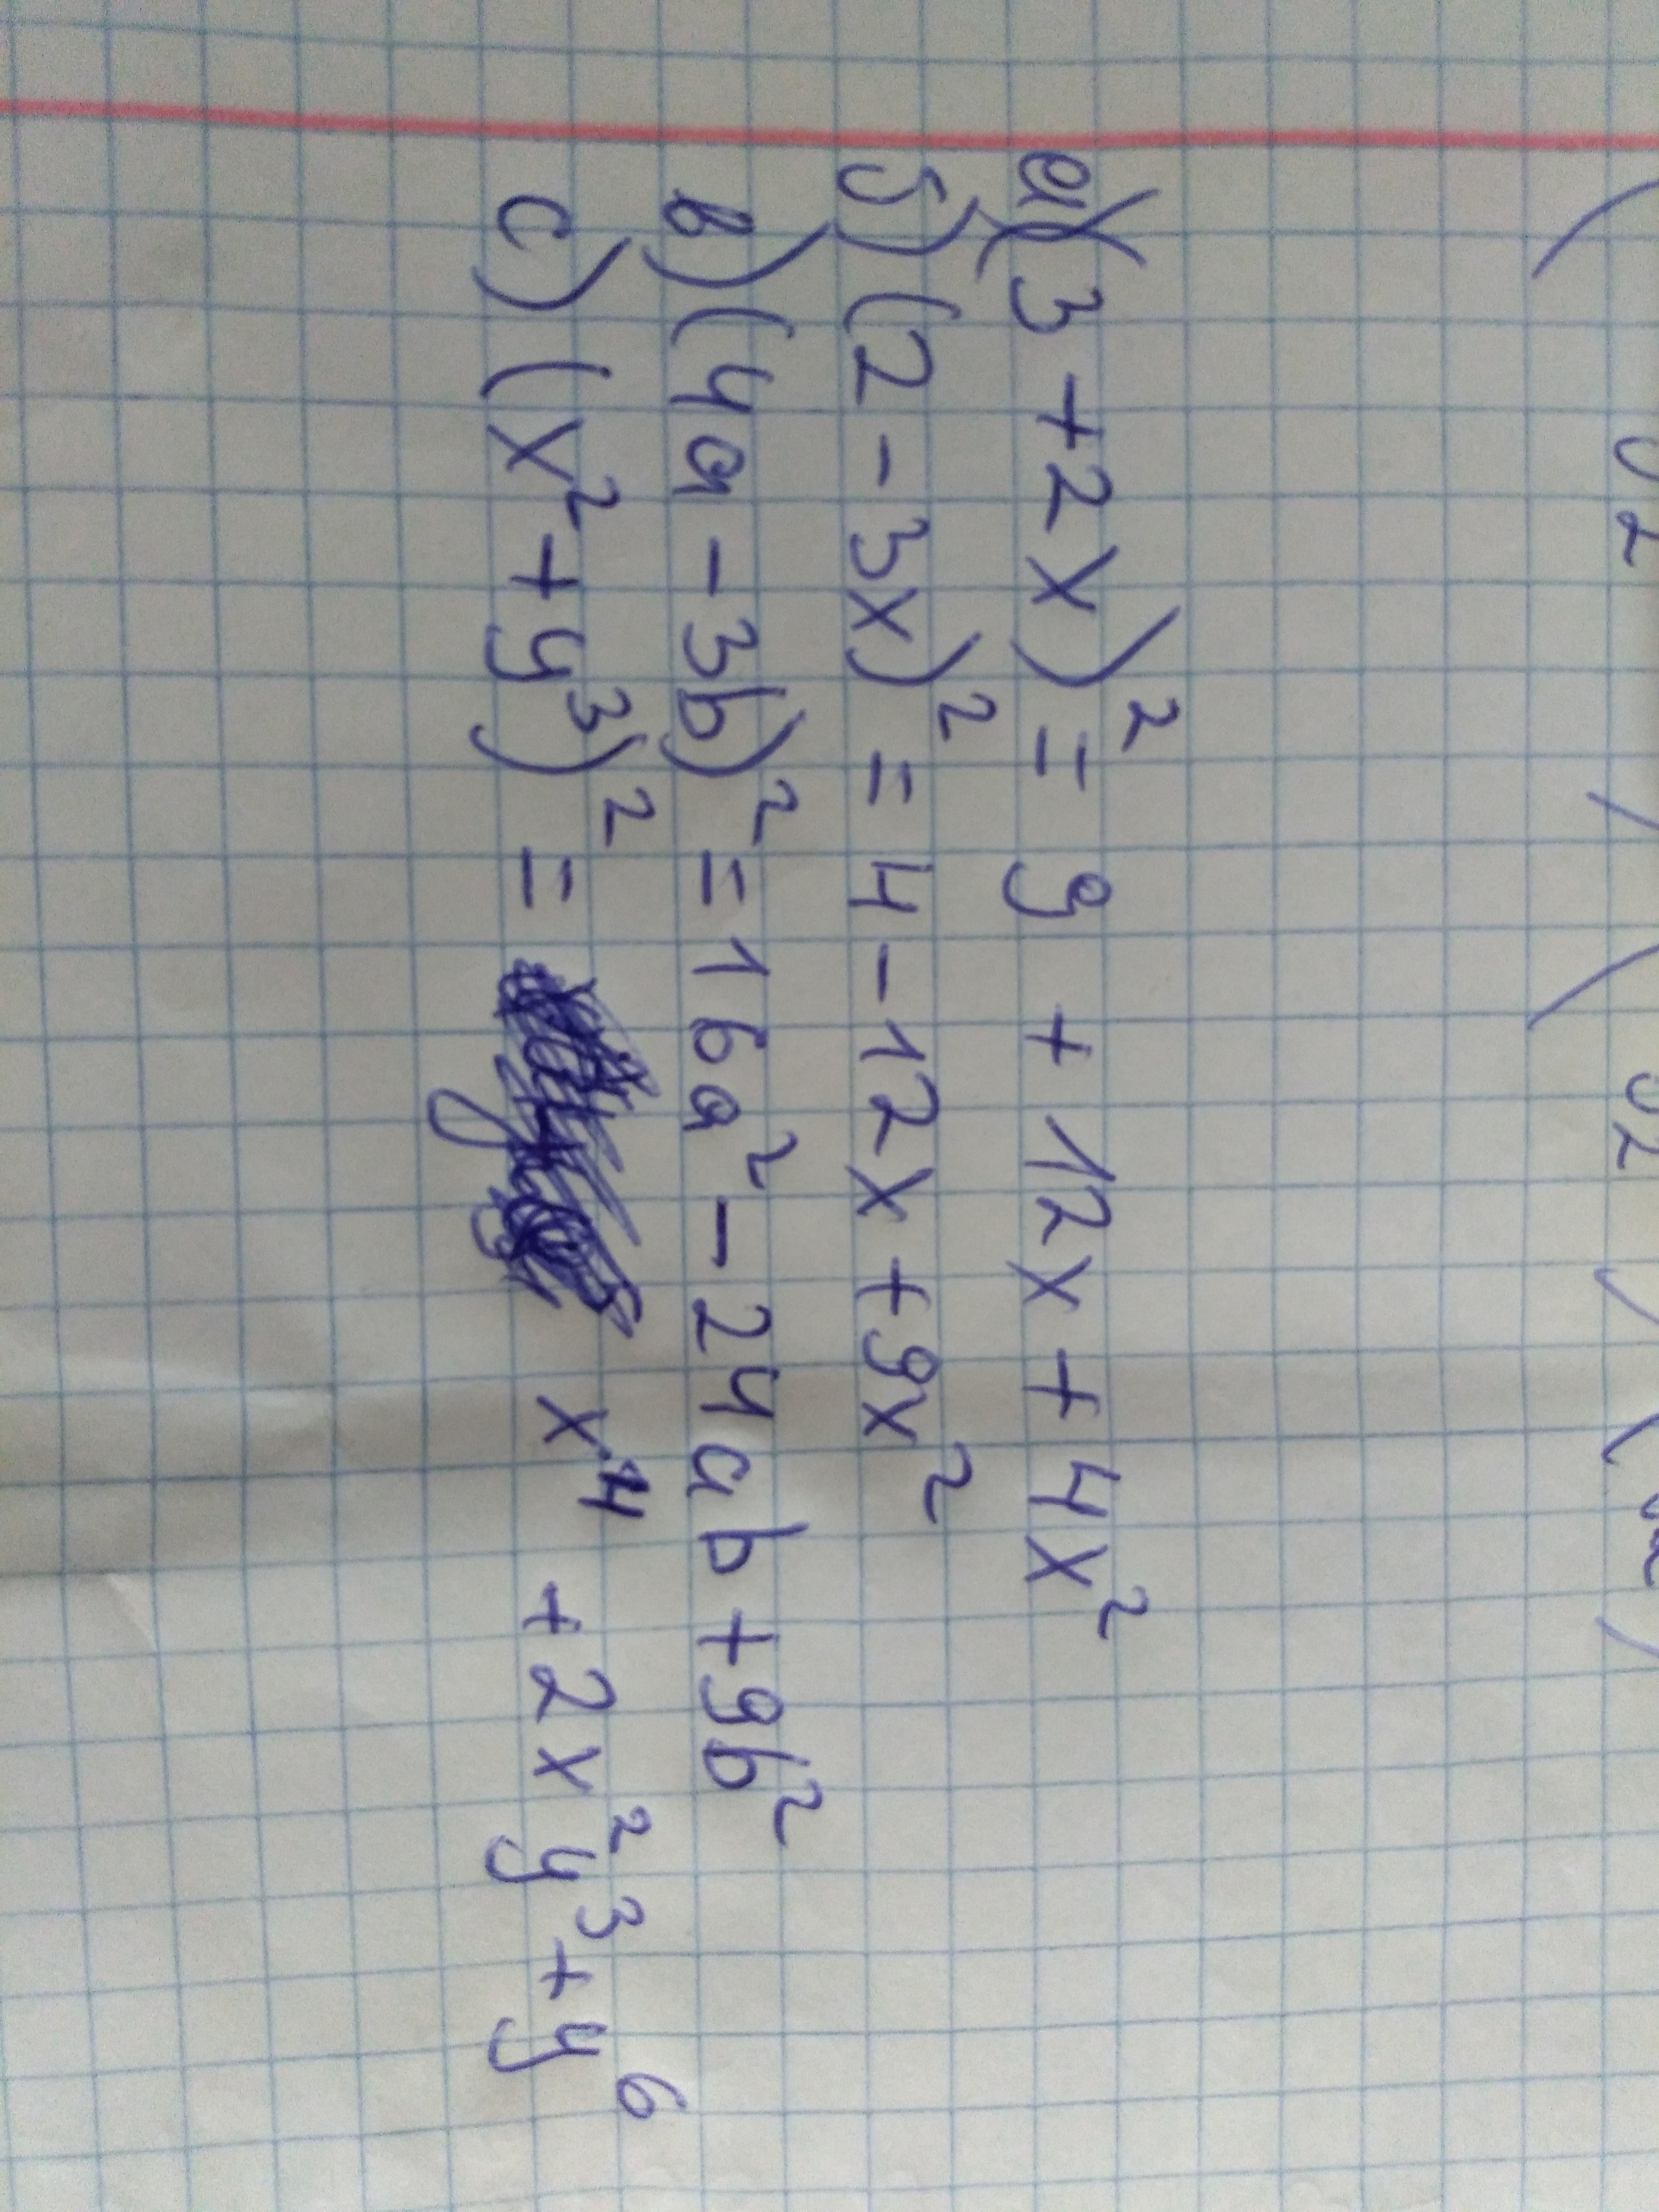 а)(3 + 2x)² = 9 + 12x + 4x²
б) (2 - 3x)² = 4 - 12x + 9x²
в) (4a - 3b)² = 16a² - 24ab + 9b²
c) (x² + y³)² = x⁴ + 2x²y³ + y⁶